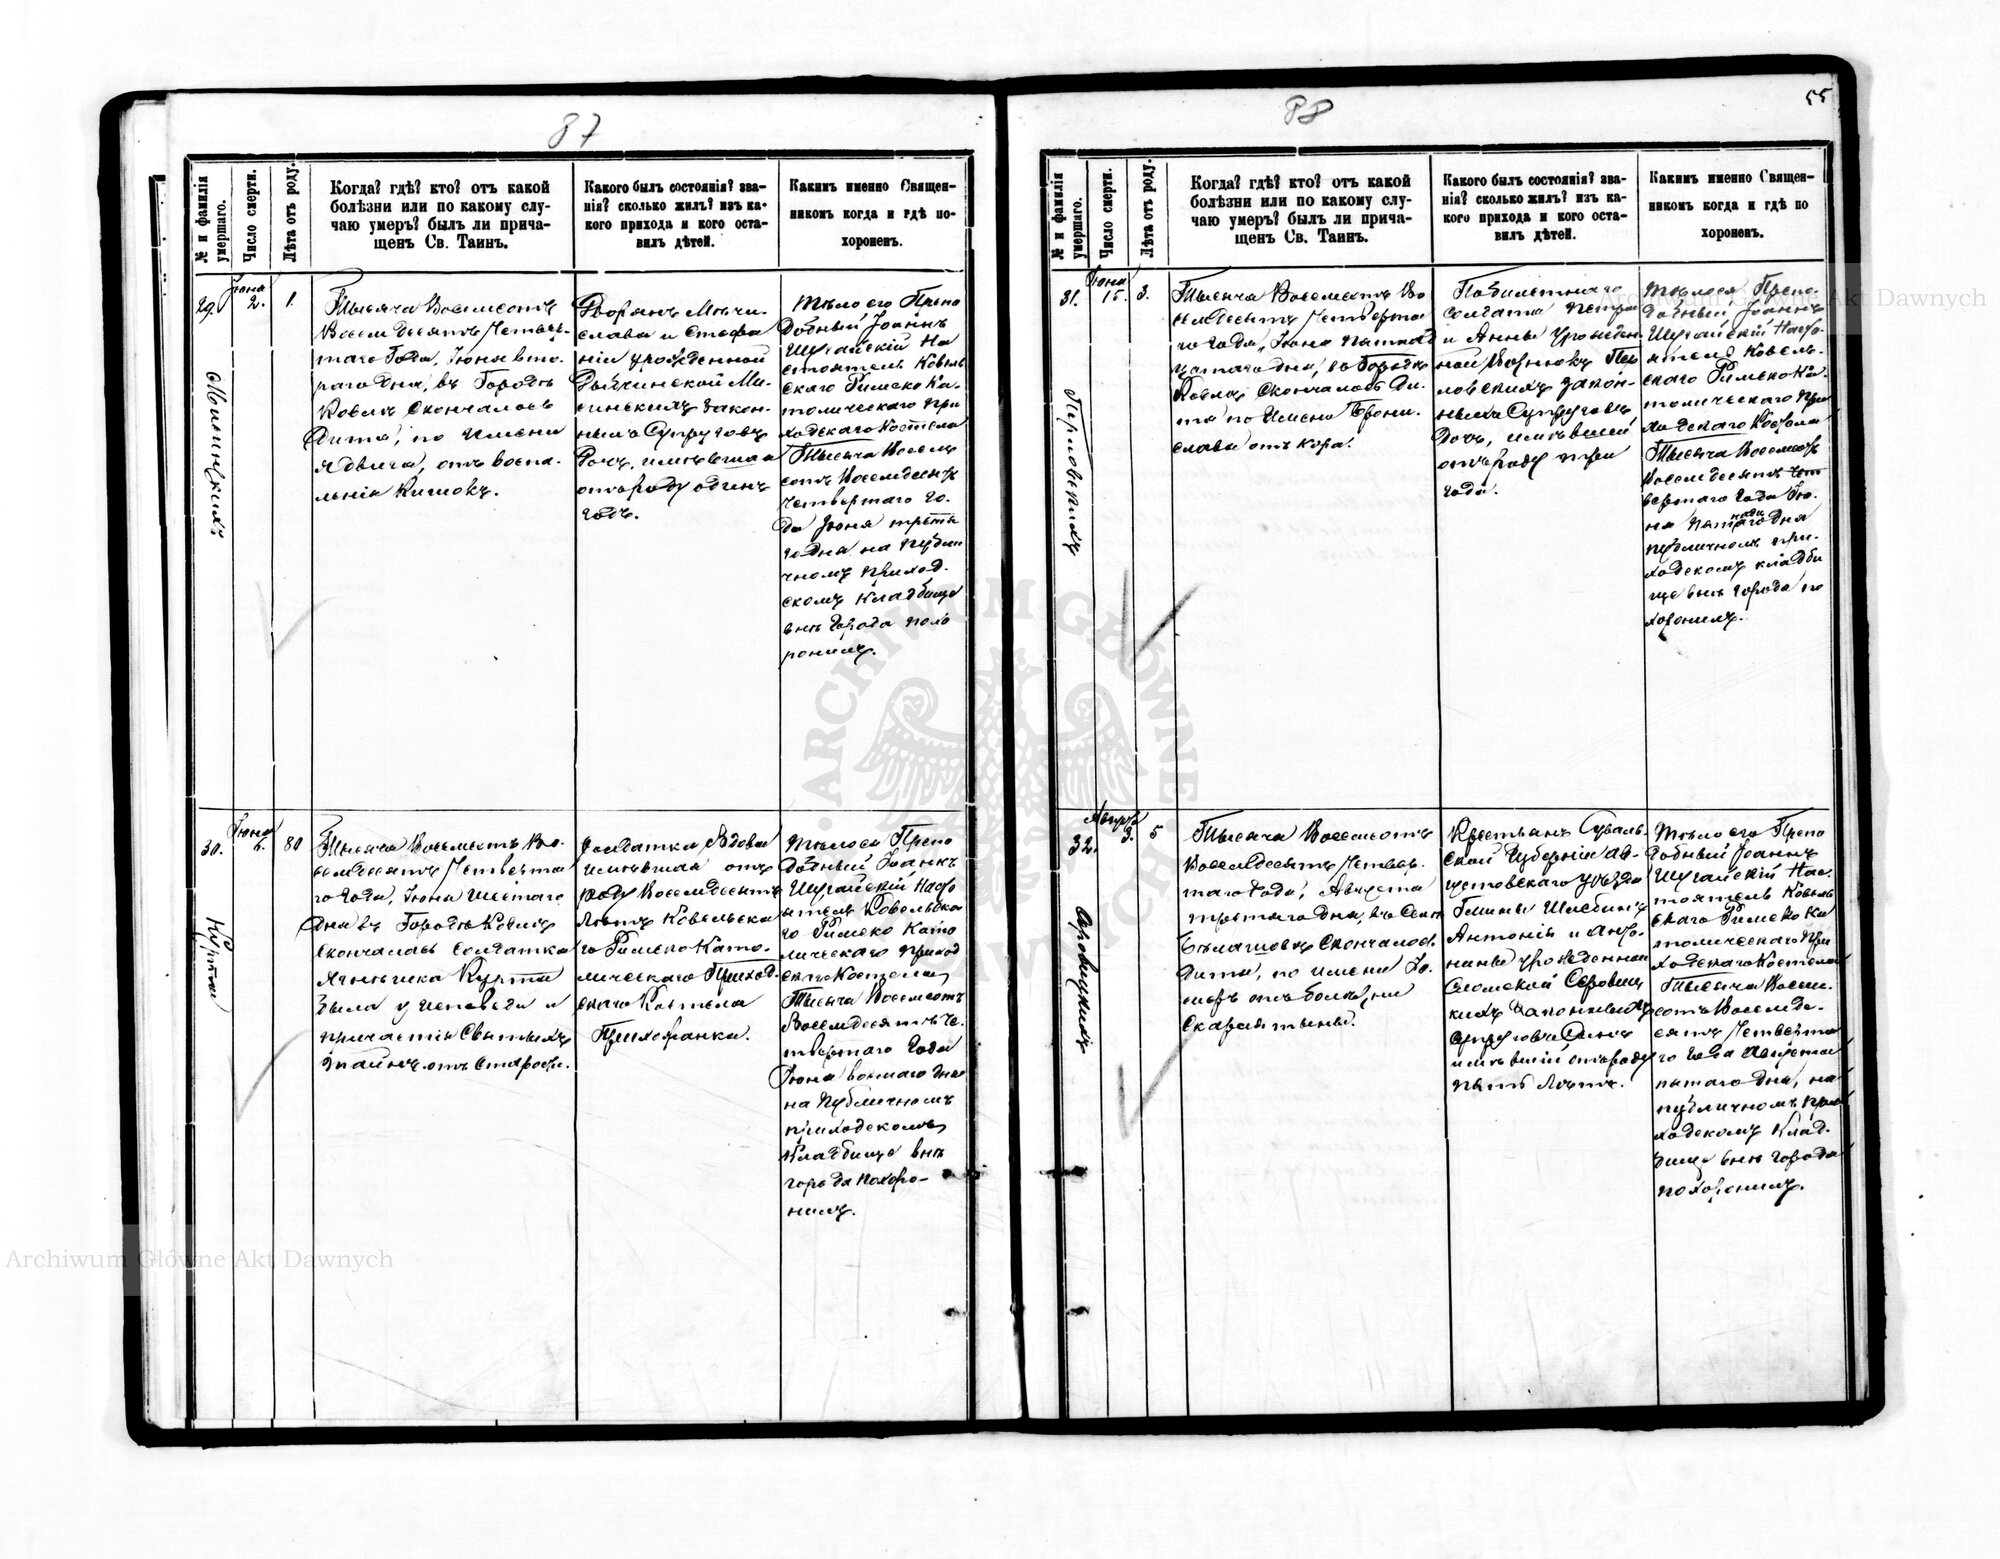 87
№ и фамилія умершаго.
Число смерти.
Лѣта отъ роду.
Когда? гдѣ? кто? отъ какой
болѣзни или по какому слу-
чаю умеръ? былъ ли прича-
щенъ Св. Таинъ.
Какого былъ состоянія? зва-
нія? сколько жилъ? изъ ка-
кого прихода и кого оста-
вилъ дѣтей.
Какимъ именно Священ-
никомъ когда и гдѣ по-
хороненъ.
29.
Іюня
2.
1.
Тысяча Восемьсотъ
Восемьдесятъ Четвер-
таго Года, Іюня вто-
раго Дня, въ Городѣ
Ковлѣ Скончалось
Дитя, по Имени
Ядвига, отъ воспа-
ленія Кишокъ.
Дворянъ Мечи-
слава и Стефа
ніи урожденной
законъ-
ныхъ Супруговъ
Дочь, имѣвшая
отъ роду одинъ
годъ.
Тѣло его Препо
добный Іоаннъ
Шугайскій На
стоятель Ковель
скаго Римско Ка-
толическаго при
ходскаго Костела
Тысяча Восемь
сотъ Восемьдесятъ
четвертаго Го-
да Іюня третья
го Дня на публи
чномъ приход-
скомъ Кладбище
внѣ Города похо
ронилъ.
30.
Іюня
6.
80
Тысяча Восемьсотъ Во-
семьдесятъ Четверта
го Года, Іюня Шестаго
Дня въ Городѣ Ковлѣ
скончалась Солдатка
Курта
была у исповѣди и
причастія Святыхъ
Таинъ отъ Старости.
Курта
Солдатка, Вдова
имѣвшая отъ
роду Восемьдесятъ
Лѣтъ Ковельска
го Римско Като-
лическаго Приход-
скаго Костела
Прихожанка.
Тѣло ея Препо
добный Іоаннъ
Шугайскій Насто
ятель Ковельска
го Римско Като
лическаго Приход
скаго Костела,
Тысяча Восемьсотъ
Восемьдесятъ Че-
твертаго Года
Іюня восмаго Дня
на Публичномъ
приходскомъ
Кладбище внѣ
города похоро-
нилъ.
88
55
№ и фамилія умершаго.
Число смерти.
Лѣта отъ роду.
Когда? гдѣ? кто? отъ какой
болѣзни или по какому слу-
чаю умеръ? былъ ли прича-
щенъ Св. Таинъ.
Какого былъ состоянія? зва-
нія? сколько жилъ? изъ ка-
кого прихода и кого оста-
вилъ дѣтей.
Какимъ именно Священ-
никомъ когда и гдѣ по
хороненъ.
31.
Іюня
15.
3.
Тысяча Восемьсотъ Во
семьдесятъ Четверта
го Года, Іюня пятнад
цатаго Дня, въ Городѣ
Ковлѣ Скончалось Ди-
тя по Имени Брони-
слава отъ кора.
солдата Петра
и Анны урожден
ной
закон-
ныхъ Супруговъ
Дочь, имѣвшей
отъ роду три
года.
Тѣло ея Препо-
добный Іоаннъ
Шугайскій Насто-
ятель Ковель-
скаго Римско Ка-
толическаго При
ходскаго Костела
Тысяча Восемьсотъ
Восемьдесятъ Чет
вертаго Года Ію-
ня пятнадцатаго Дня
публичномъ при-
ходскомъ кладби
ще внѣ города по
хоронилъ.
32.
Августа
3.
5
Тысяча Восемьсотъ
Восемьдесятъ Четвер-
таго Года, Августа
третьяго Дня, въ Селѣ
Скончалось
Дитя, по имени
отъ болѣзни
Скарлятыны.
Крестьянъ Суваль-
ской Губерніи Ав-
густовскаго уѣзда
Гмины
Антонія и Анто-
нины урожденной
законныхъ
супруговъ Сынъ
имѣвшій отъ роду
пять Лѣтъ.
Тѣло его Препо
добный Іоаннъ
Шугайскій Нас-
тоятель Ковель
скаго Римско Ка
толическаго При
ходскаго Костела
Тысяча Восемь-
сотъ Восемьде-
сятъ Четверта
го Года Августа
пятаго Дня, на
публичномъ при
ходскомъ Клад-
бище внѣ города
похоронилъ.
ARCHIWUM GŁÓWNE AKT DAWNYCH
Archiwum Główne Akt Dawnych
Archiwum Główne Akt Dawnych